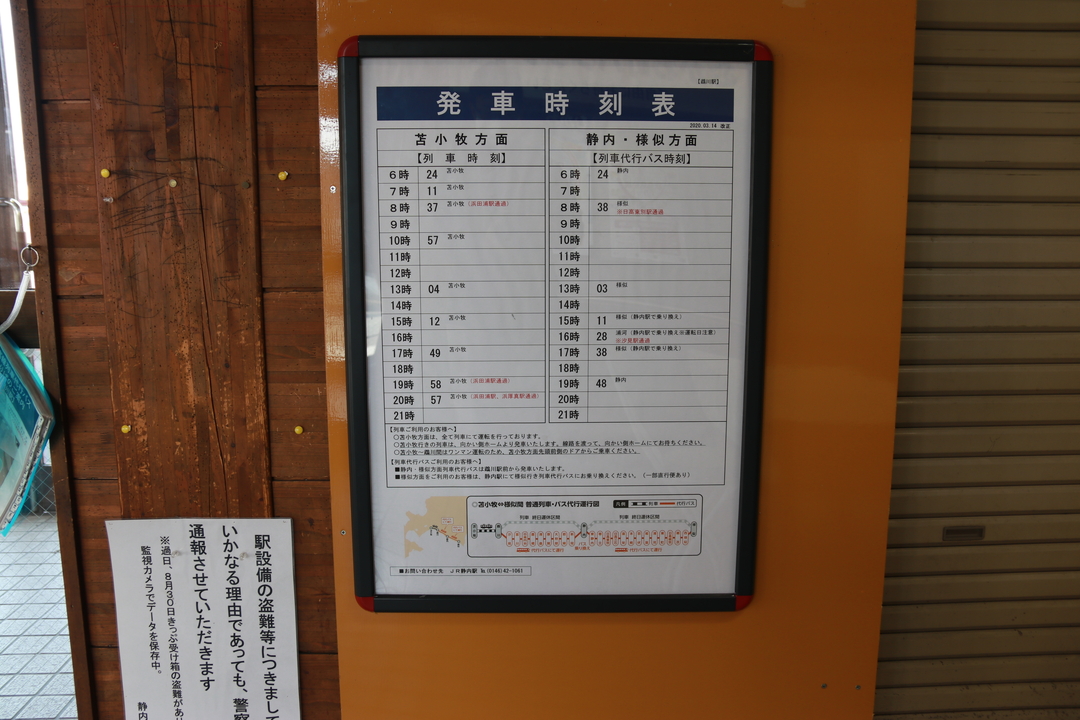 【鵡川駅】
発車時刻表
2020.03.14 改正
苫小牧方面
【列車時刻】
6時 24 苫小牧
7時 11 苫小牧
8時 37 苫小牧（浜田浦駅通過）
9時
10時 57 苫小牧
11時
12時
13時 04 苫小牧
14時
15時 12 苫小牧
16時
17時 49 苫小牧
18時
19時 58 苫小牧（浜田浦駅通過）
20時 57 苫小牧（浜田浦駅、浜厚真駅通過）
21時
静内・様似方面
【列車代行バス時刻】
6時 24 静内
7時
8時 38 様似
※日高東別駅通過
9時
10時
11時
12時
13時 03 様似
14時
15時 11 様似（静内駅で乗り換え）
16時 28 浦河（静内駅で乗り換え※運転日注意）
※汐見駅通過
17時 38 様似（静内駅で乗り換え）
18時
19時 48 静内
20時
21時
【列車ご利用のお客様へ】
○苫小牧方面は、全て列車にて運転を行っております。
○苫小牧行きの列車は、向かい側ホームより発車いたします。線路を渡って、向かい側ホームにてお待ちください。
○苫小牧～鵡川間はワンマン運転のため、苫小牧方面先頭前側のドアからご乗車ください。
【列車代行バスご利用のお客様へ】
■静内・様似方面列車代行バスは鵡川駅前から発車いたします。
■様似方面をご利用のお客様は、静内駅にて様似行き列車代行バスにお乗り換えください。（一部直行便あり）
○苫小牧⇔様似間 普通列車・バス代行運行図
凡例 列車 代行バス
列車 終日運休区間
列車 終日運休区間
代行バスにて運行
バス
乗り換え
代行バスにて運行
■お問い合わせ先 ＪＲ静内駅 ℡(0146)42-1061
駅設備の盗難等につきまして
いかなる理由であっても、警察
通報させていただきます
※過日、8月30日きっぷ受け箱の盗難があり
監視カメラでデータを保存中。
静内